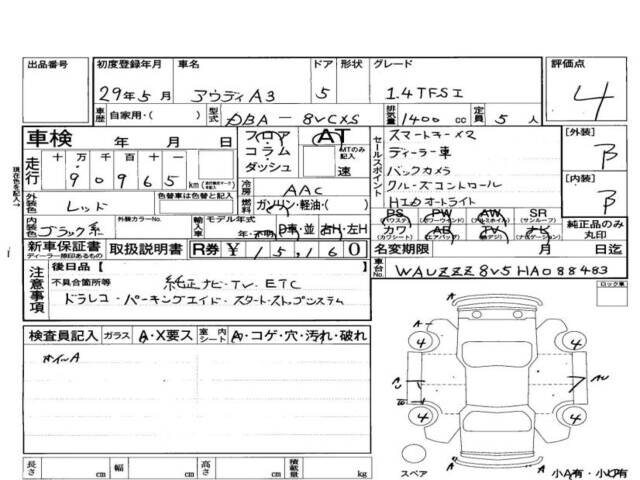 出品番号 初度登録年月 車名 ドア 形状 グレード 評価点
29年5月 アウディA3 5 1.4TFSI 4
車歴 自家用・( ) 型式 DBA-8VCXS 排気量 1400 cc 定員 5 人
車検 年 月 日 フロア コラム ダッシュ AT MTのみ記入 速
走行 十 万 千 百 十 一
9 0 9 6 5 km
セールスポイント
スマートキー×2
ディーラー車
バックカメラ
クルーズコントロール
HIDオートライト
[外装] B
[内装] B
現在色を記入→
外装色 レッド 色替車は色替と記入 冷房 AAC
燃料 ガソリン・軽油・( )
内装色 ブラック系 外装カラーNo. 輸入車 モデル年式 年・不明 D車・並 右H・左H
PS (パワステ) PW (パワーウインド) AW (アルミホイル) SR (サンルーフ)
カワ (カワシート) AB (エアバッグ) TV (テレビ) ナビ (ナビゲーション)
純正品のみ丸印
新車保証書 ディーラー捺印あるもの 取扱説明書 R券 ¥ 15,160 名変期限 月 日迄
車台No. WAUZZZ8V5HA088483
注意事項 後日品[ ]
不具合箇所等 純正ナビ・TV・ETC
ドラレコ・パーキングエイド・スタートストップシステム
ロック車
検査員記入 ガラス A・X要ス 室内シート A・コゲ・穴・汚れ・破れ
ホイールA
A
4 4
A
4 4
A
スペア
小A有・小U有
長さ cm 幅 cm 高さ cm 積載量 kg